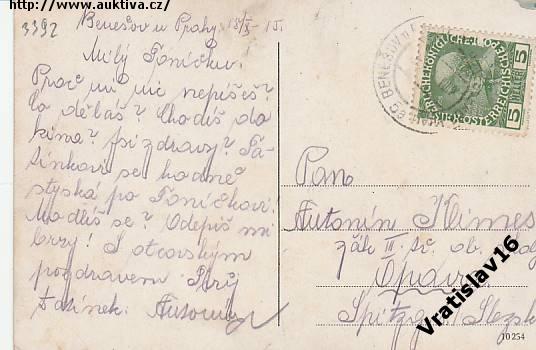 http://www.auktiva.cz/
3392
Benešov u Prahy 18/X 15.
Milý Toníčku!
Proč mi nic nepíšeš?
Co děláš? Chodíš do
kina? Jsi zdravý? Ta-
tínkovi se hodně
stýská po Toníčkovi.
Modlíš se? Odepiš mi
brzy! S otcovským
pozdravem Tvůj
tatínek: Antonín
BENEŠOV u P
5 HELLER 5
Pan
Antonín Klimeš
žák II. tř. ob.
Opava
Spitzg Slezsk
Vratislav16
10254